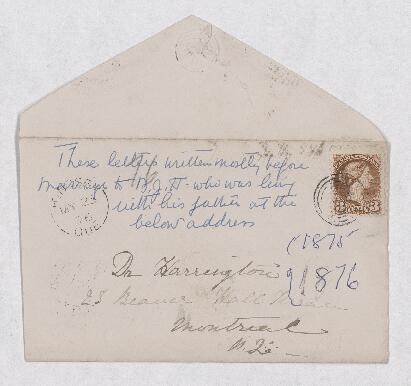 These letters written mostly before
marriage to B.J.H. who was living
with his father at the
below address
MY 23
76
QUE
3 CENTS 3
(1875
1876
Dr Harrington
23 Beaver Hall
Montreal